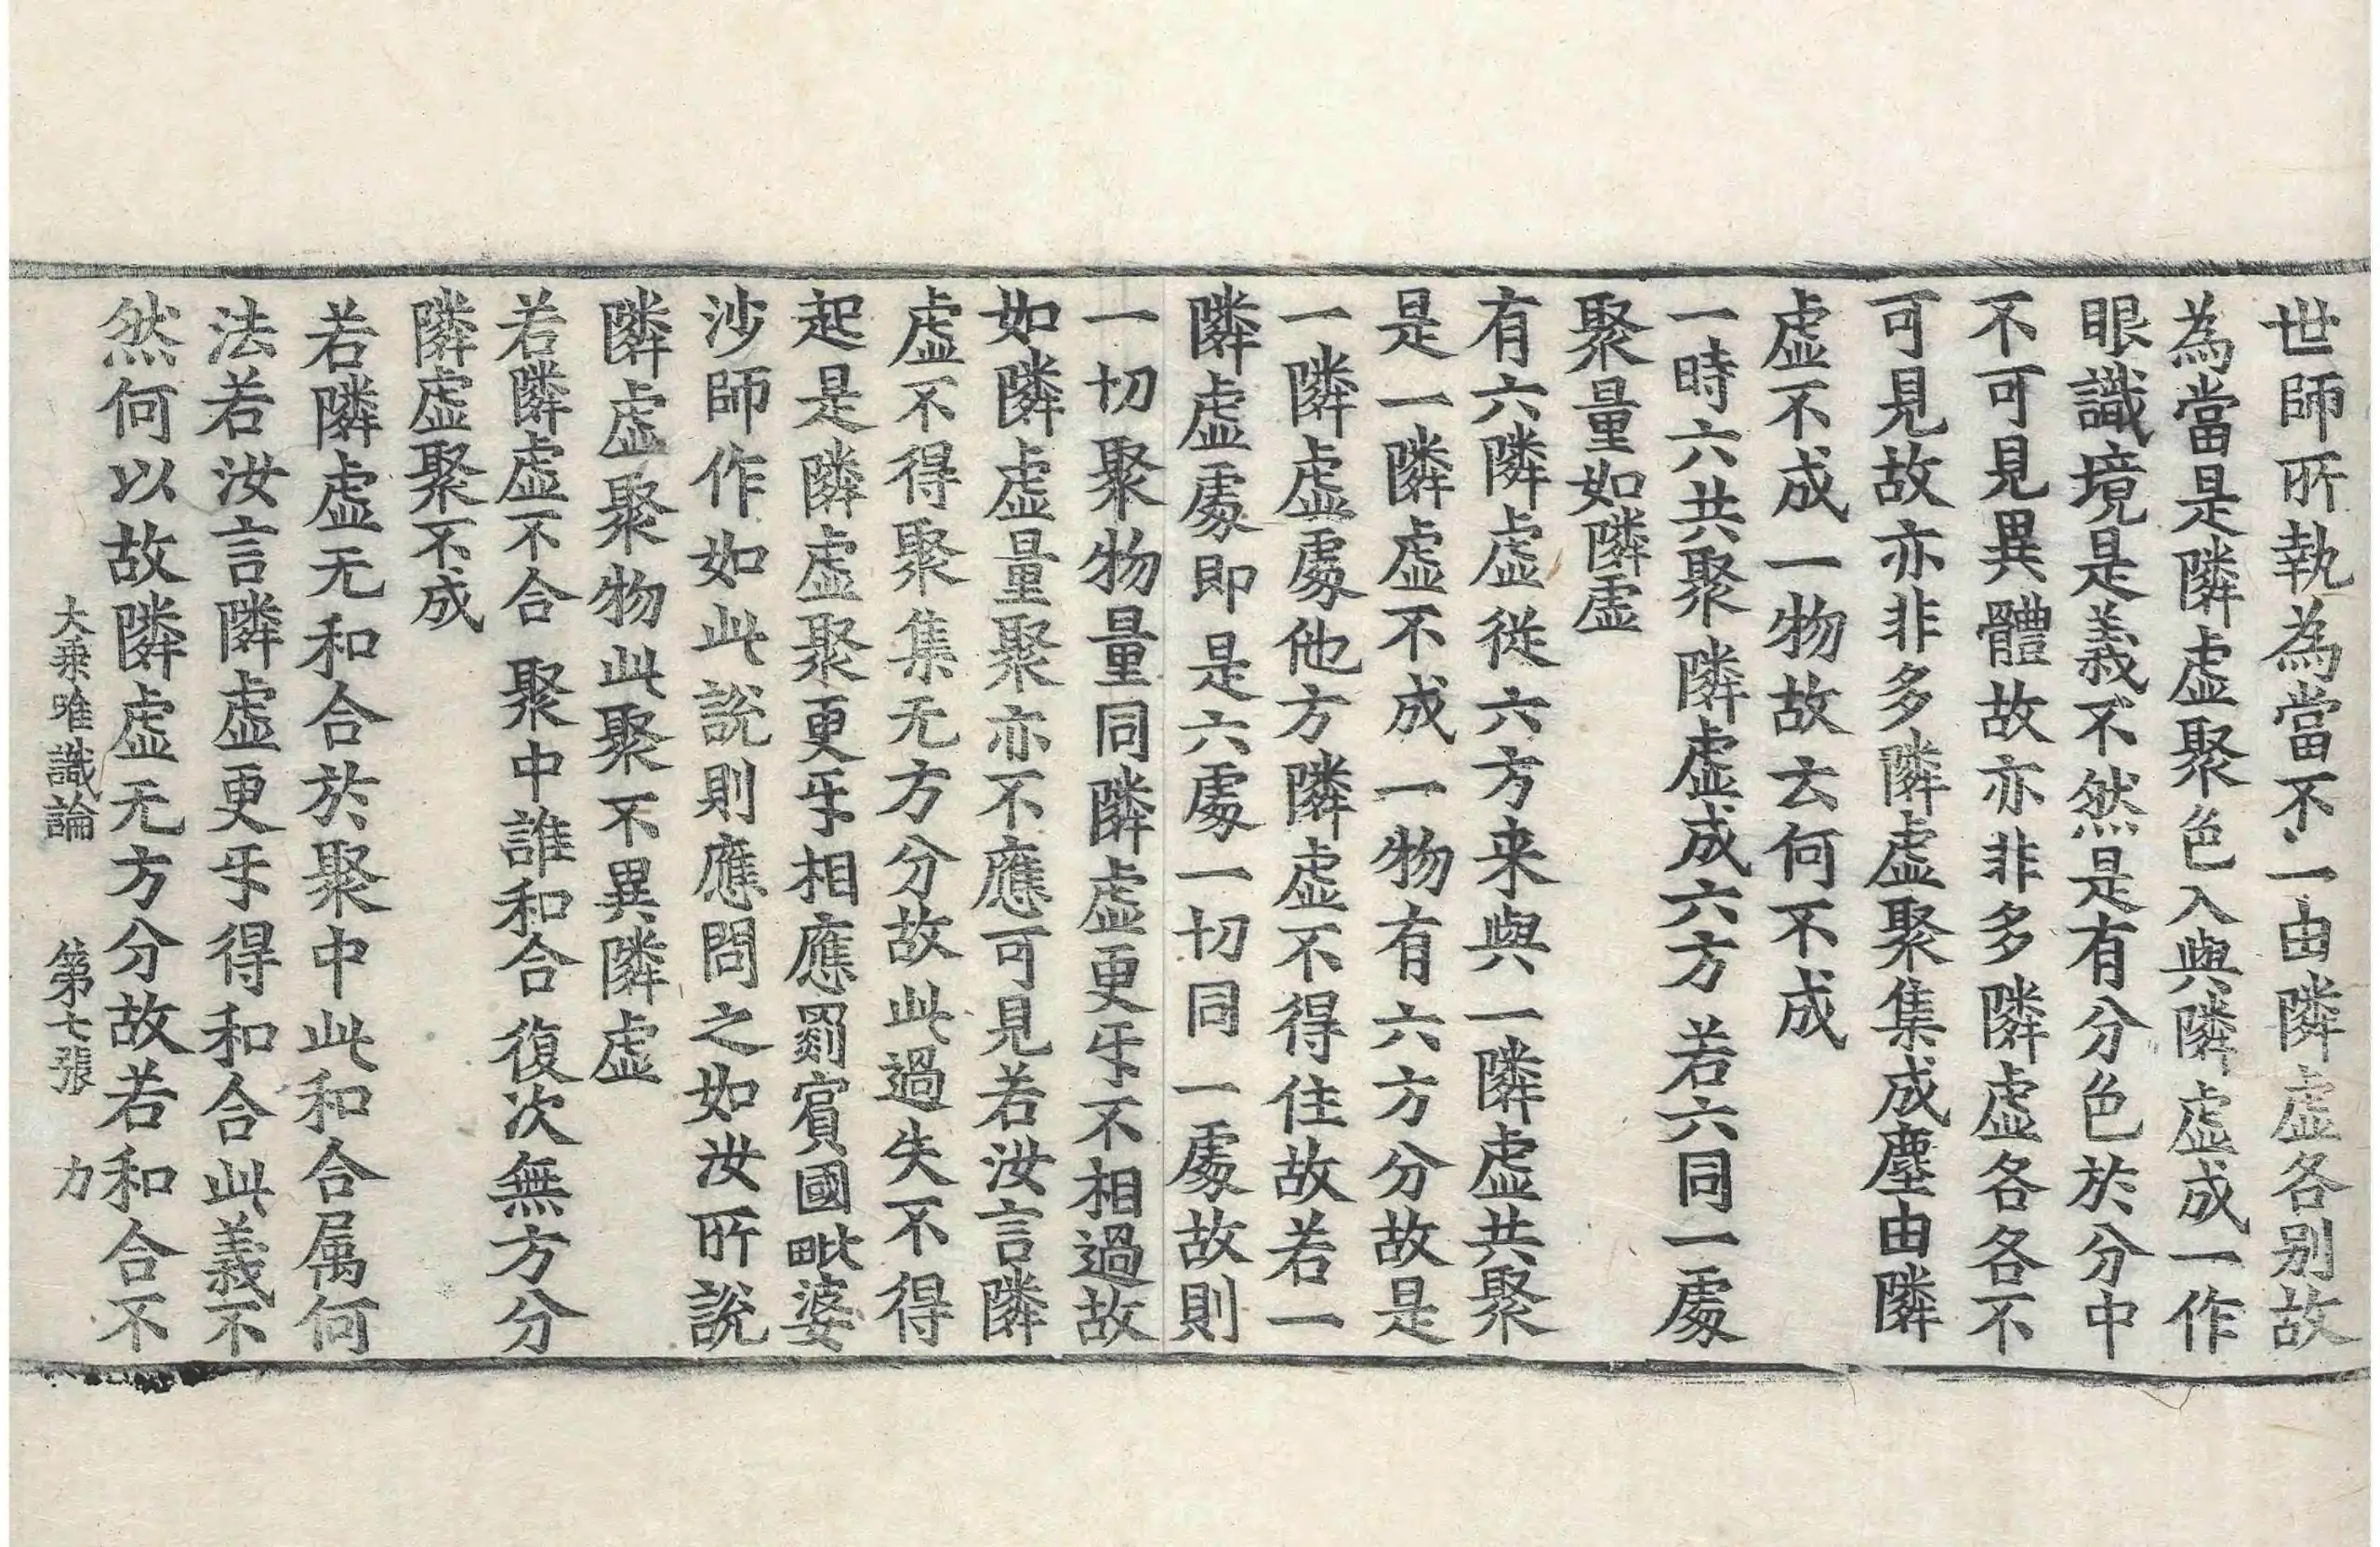 世師所執為當不一由隣虛各別故
為當是隣虛聚色入與隣虛成一作
眼識境是義不然是有分色於分中
不可見異體故亦非多隣虛各各不
可見故亦非多隣虛聚集成塵由隣
虛不成一物故云何不成
一時六共聚 隣虛成六方 若六同一處
聚量如隣虛
有六隣虛從六方来與一隣虛共聚
是一隣虛不成一物有六方分故是
一隣虛處他方隣虛不得住故若一
隣虛處即是六處一切同一處故則
一切聚物量同隣虛更㸦不相過故
如隣虛量聚亦不應可見若汝言隣
虛不得聚集无方分故此過失不得
起是隣虛聚更㸦相應罽賓國毗婆
沙師作如此說則應問之如汝所說
隣虛聚物此聚不異隣虛
若隣虛不合 聚中誰和合 復次無方分
隣虛聚不成
若隣虛无和合於聚中此和合属何
法若汝言隣虛更㸦得和合此義不
然何以故隣虛无方分故若和合不
大乗唯識論 第七張 力